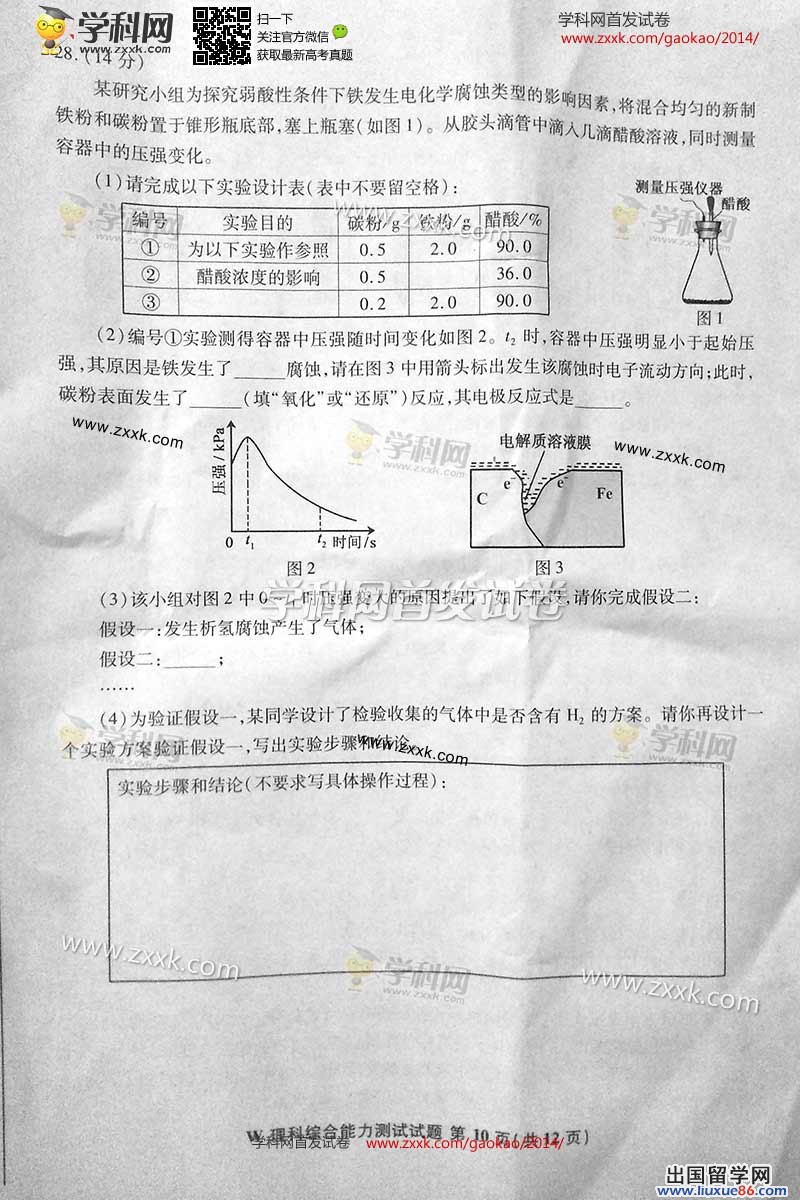 学科网
www.zxxk.com
扫一下
关注官方微信
获取最新高考真题
学科网首发试卷
www.zxxk.com/gaokao/2014/
28.(14分)
某研究小组为探究弱酸性条件下铁发生电化学腐蚀类型的影响因素,将混合均匀的新制
铁粉和碳粉置于锥形瓶底部,塞上瓶塞(如图1)。从胶头滴管中滴入几滴醋酸溶液,同时测量
容器中的压强变化。
(1)请完成以下实验设计表(表中不要留空格):
编号 实验目的 碳粉/g 铁粉/g 醋酸/%
① 为以下实验作参照 0.5 2.0 90.0
② 醋酸浓度的影响 0.5 36.0
③ 0.2 2.0 90.0
测量压强仪器
醋酸
图1
(2)编号①实验测得容器中压强随时间变化如图2。t₂ 时,容器中压强明显小于起始压
强,其原因是铁发生了______腐蚀,请在图3中用箭头标出发生该腐蚀时电子流动方向;此时,
碳粉表面发生了______(填“氧化”或“还原”)反应,其电极反应式是______。
www.zxxk.com
学科网
www.zxxk.com
www.zxxk.com
压强/kPa
0 t₁ t₂ 时间/s
图2
电解质溶液膜
C e⁻ e⁻ Fe
图3
学科网首发试卷
(3)该小组对图2中0~t₁时压强变大的原因提出了如下假设,请你完成假设二:
假设一:发生析氢腐蚀产生了气体;
假设二:______;
……
(4)为验证假设一,某同学设计了检验收集的气体中是否含有 H₂ 的方案。请你再设计一
个实验方案验证假设一,写出实验步骤和结论。
学科网
www.zxxk.com
学科网
www.zxxk.com
www.zxxk.com
实验步骤和结论(不要求写具体操作过程):
www.zxxk.com
学科网
www.zxxk.com
www.zxxk.com
W 理科综合能力测试试题 第 10 页(共12页)
学科网首发试卷
www.zxxk.com/gaokao/2014/
出国留学网
www.liuxue86.com